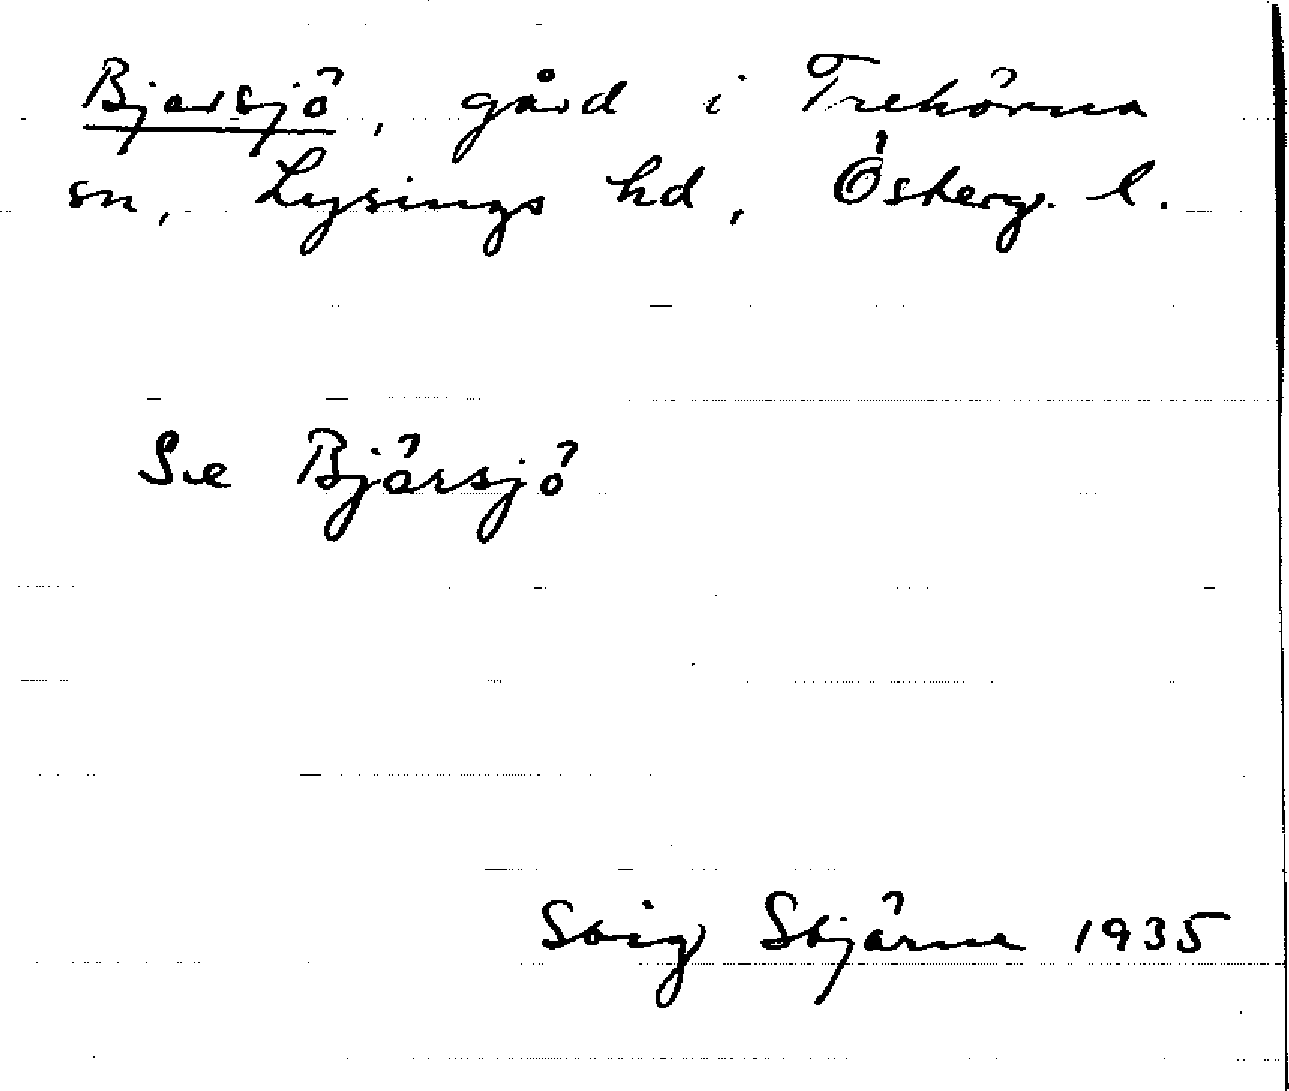 Bjarsjö, gård i Trehörna
sn, Lysings hd, Österg. l.
Se Bjärsjö
Stig Stjärne 1935